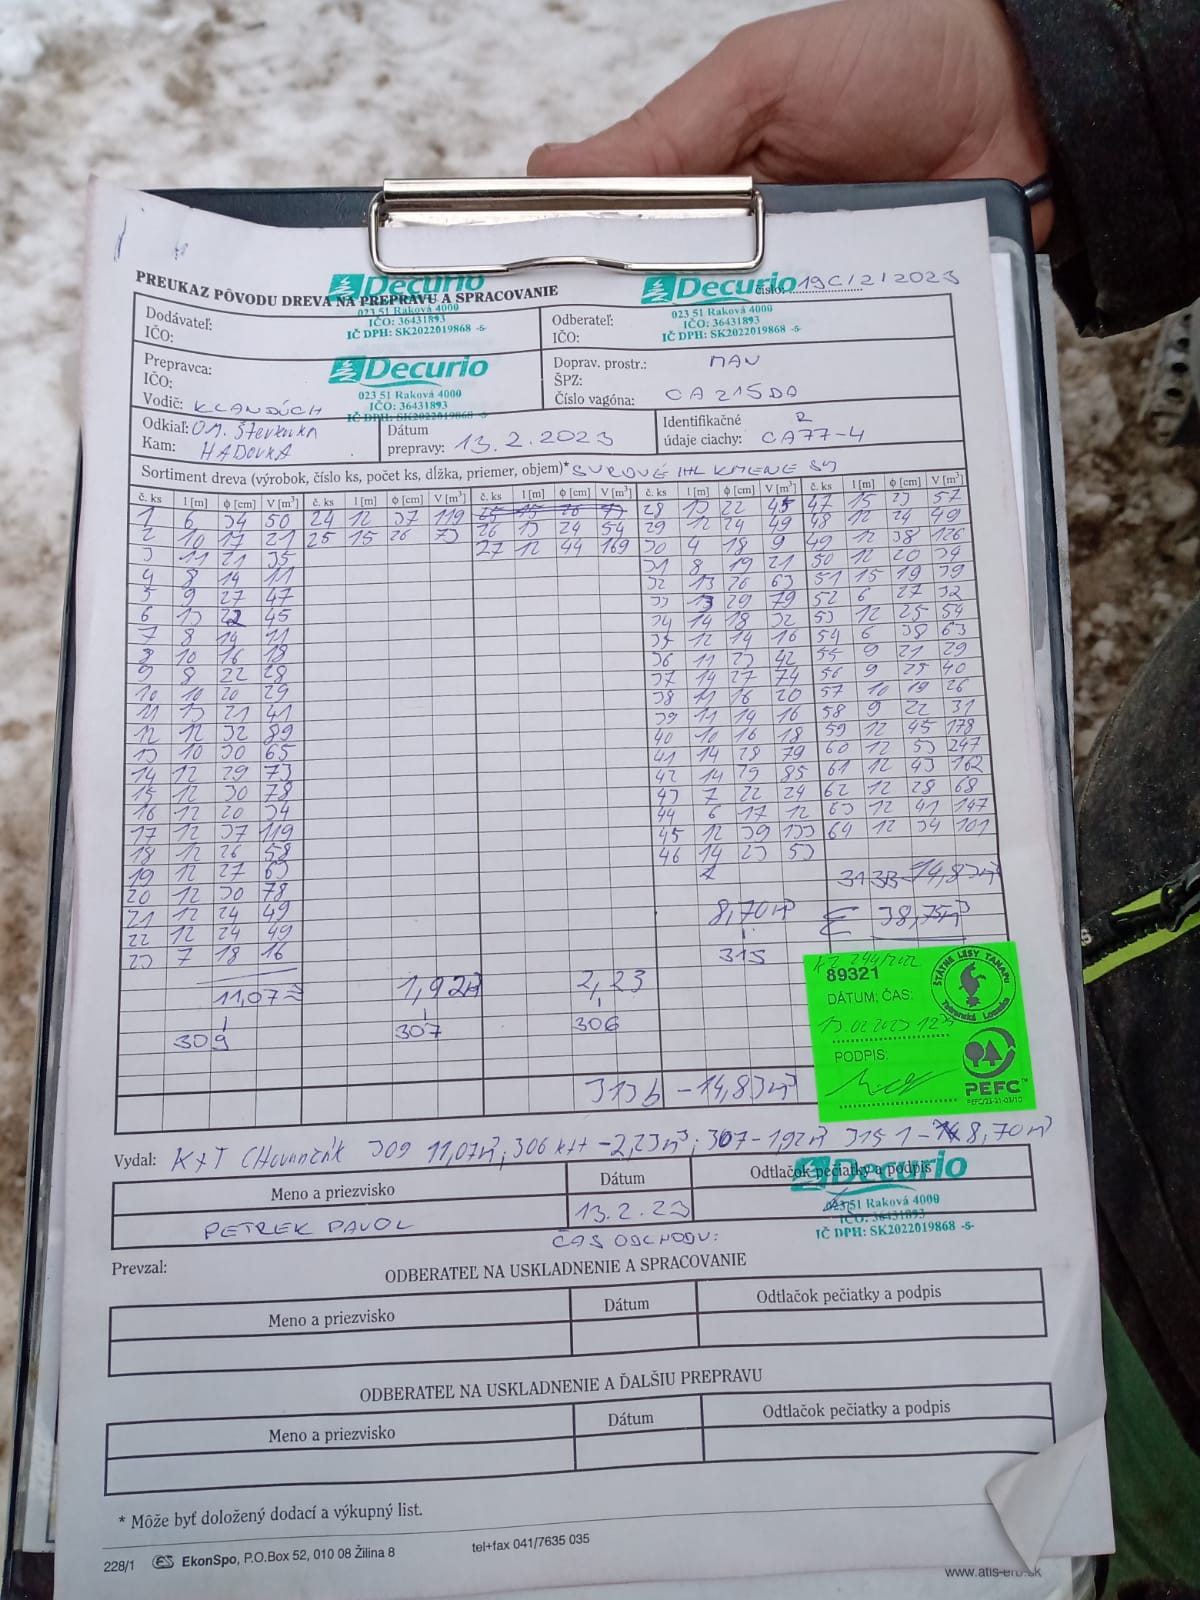 PREUKAZ PÔVODU DREVA NA PREPRAVU A SPRACOVANIE
Decurio
023 51 Raková 4000
IČO: 36431893
IČ DPH: SK2022019868 -5-
Decurio
číslo: 19C/2/2023
023 51 Raková 4000
IČO: 36431893
IČ DPH: SK2022019868 -5-
Dodávateľ:
IČO:
Odberateľ:
IČO:
Prepravca:
IČO:
Vodič: KLANDÚCH
Decurio
023 51 Raková 4000
IČO: 36431893
IČ DPH: SK2022019868 -5-
Doprav. prostr.: MAN
ŠPZ:
Číslo vagóna: CA 215DA
Odkiaľ: OM. Števkovka
Kam: HÁDOVKA
Dátum
prepravy: 13.2.2023
Identifikačné R
údaje ciachy: CA77-4
Sortiment dreva (výrobok, číslo ks, počet ks, dĺžka, priemer, objem)* SUROVÉ IHL KMENE SM
č. ks l [m] ϕ [cm] V [m³] č. ks l [m] ϕ [cm] V [m³] č. ks l [m] ϕ [cm] V [m³] č. ks l [m] ϕ [cm] V [m³] č. ks l [m] ϕ [cm] V [m³]
1 6 34 50 24 12 37 119 25 15 26 73 28 13 22 45 47 15 23 57
2 10 17 21 25 15 26 73 26 13 24 54 29 12 24 49 48 12 24 49
3 11 21 35 27 12 44 169 30 4 18 9 49 12 38 126
4 8 14 11 31 8 19 21 50 12 20 34
5 9 27 47 32 13 26 63 51 15 19 39
6 13 22 45 33 13 29 79 52 6 27 32
7 8 14 11 34 14 18 32 53 12 25 54
8 10 16 18 35 12 14 16 54 6 38 63
9 8 22 28 36 11 23 42 55 9 21 29
10 10 20 29 37 14 27 74 56 9 25 40
11 13 21 41 38 11 16 20 57 10 19 26
12 12 32 89 39 11 14 16 58 9 22 31
13 10 30 65 40 10 16 18 59 12 45 178
14 12 29 73 41 14 28 79 60 12 53 247
15 12 30 78 42 14 29 85 61 12 43 162
16 12 20 34 43 7 22 24 62 12 28 68
17 12 37 119 44 6 17 12 63 12 41 147
18 12 26 58 45 12 39 133 64 12 34 101
19 12 27 63 46 14 23 53
20 12 30 78
21 12 24 49
22 12 24 49
23 7 18 16
313B 14,83m³
8,70m³ Σ 38,75m³
315
11,07 1,92 2,23
309 307 306
313b - 14,83m³
89321
DÁTUM; ČAS:
13.02.2023
PODPIS:
ŠTÁTNE LESY TANAPU
Tatranská Lomnica
PEFC™
Vydal: KxT Chovančák 309 11,07m³; 306 kxt - 2,23m³; 307 - 1,92m³ 315 1 - 8,70m³
Meno a priezvisko
Dátum
Odtlačok pečiatky a podpis
PETREK PAVOL
13.2.23
Decurio
023 51 Raková 4000
IČO: 36431893
IČ DPH: SK2022019868 -5-
ČAS ODCHODU:
Prevzal:
ODBERATEĽ NA USKLADNENIE A SPRACOVANIE
Meno a priezvisko
Dátum
Odtlačok pečiatky a podpis
ODBERATEĽ NA USKLADNENIE A ĎALŠIU PREPRAVU
Meno a priezvisko
Dátum
Odtlačok pečiatky a podpis
* Môže byť doložený dodací a výkupný list.
228/1 EkonSpo, P.O.Box 52, 010 08 Žilina 8
tel+fax 041/7635 035